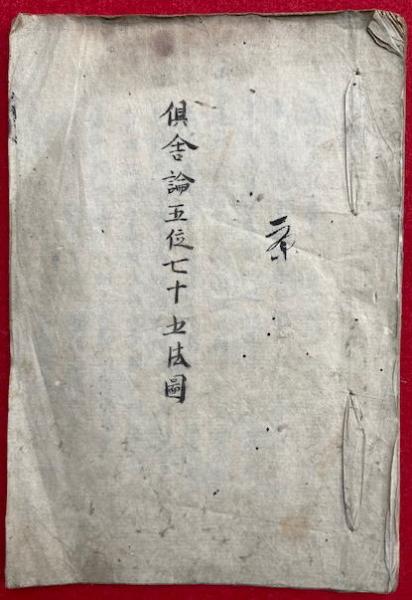 俱舍論五位七十五法圖